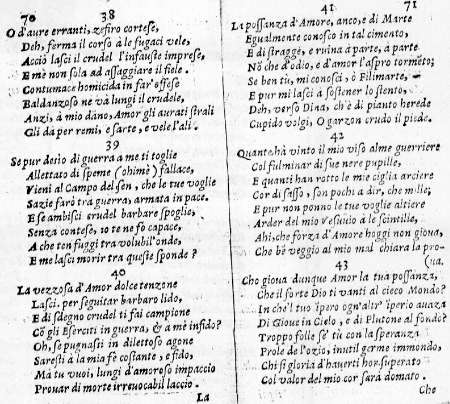 70
38
O d'aure erranti, zefiro cortese,
Deh, ferma il corso à le fugaci vele,
Acciò lasci il crudel l'infauste imprese,
E mè non sola ad assaggiare il fiele.
Contumace homicida in far'offese
Baldanzoso ne và lungi il crudele,
Anzi, à mio dàno, Amor gli aurati strali
Gli dà per remi, e sarte, e vele l'ali.
39
Se pur desio di guerra a me ti toglie
Allettato di speme (ohimè) fallace,
Vieni al Campo del sen, che le tue voglie
Sazie farò trà guerra, armata in pace.
E se ambisci crudel barbare spoglie,
Senza contese, io te ne fò capace,
A che ten fuggi tra volubil'onde,
E me lasci morir tra queste sponde?
40
La vezzosa d'Amor dolce tenzone
Lasci, per seguitar barbaro lido,
E di sdegno crudel ti fai campione
Cō gli Eserciti in guerra, & a mè infido?
Oh, se pugnassi in dilettoso agone
Saresti à la mia fè costante, e fido,
Mà tu vuoi, lungi d'amoroso impaccio
Prouar di morte irreuocabil laccio.
La
41
71
La possanza d'Amore, anco, e di Marte
Egualmente conosco in tal cimento,
E di stragge, e ruina à parte, à parte
Nō che d'odio, e d'amor l'aspro tormēto;
Se ben tu, mi conosci, ò Filimarte,
E pur mi lasci à sostener lo stento,
Deh, verso Dina, ch'è di pianto herede
Cupido volgi, O garzon crudo il piede.
42
Quante hà vinto il mio viso alme guerriere
Col fulminar di sue nere pupille,
E quanti han rotto le mie ciglia arciere
Cor di sasso, son pochi a dir, che mille;
E pur non ponno le tue voglie altiere
Arder del mio Vesuvio à le scintille,
Ahi, che forza d'Amore hoggi non gioua,
Che bē veggio al mio mal chiara la pro-
(ua.
43
Che gioua dunque Amor la tua possanza,
Che il forte Dio ti vanti al cieco Mondo?
In che'l tuo īpero ogn'altr' īperio auaza
Di Gioue in Cielo, e di Plutone al fondo?
Troppo folle se' tù con la speranza
Prole de l'ozio, inutil germe immondo,
Chi si gloria d'hauerti hor superato
Col valor del mio cor sarà domato.
Che